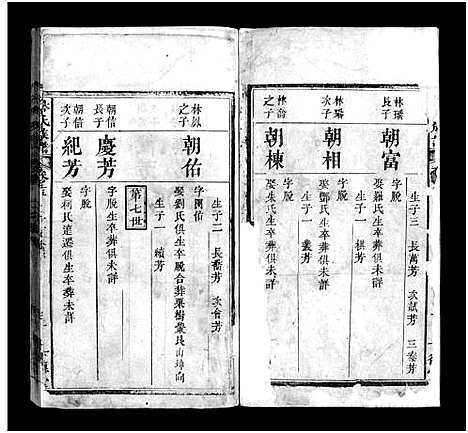 生子三 長萬芳 次試芳 三泰芳
林瑞
長子
朝富
字脫
娶羅氏生卒葬俱未詳
生子一 棋芳
林瑞
次子
朝相
字脫
娶鄧氏生卒葬俱未詳
生子一 叢芳
林
之子
朝棟
字脫
娶朱氏生卒葬俱未詳
生子二 長喬芳 次會芳
林鳳
之子
朝佑
字開信
娶劉氏俱生卒脫合葬栗樹艮山坤向
生子一 績芳
第七世
朝信
長子
慶芳
字脫生卒葬俱未詳
朝信
次子
紀芳
字脫
娶柯氏遺遷俱生卒葬未詳
氏族譜